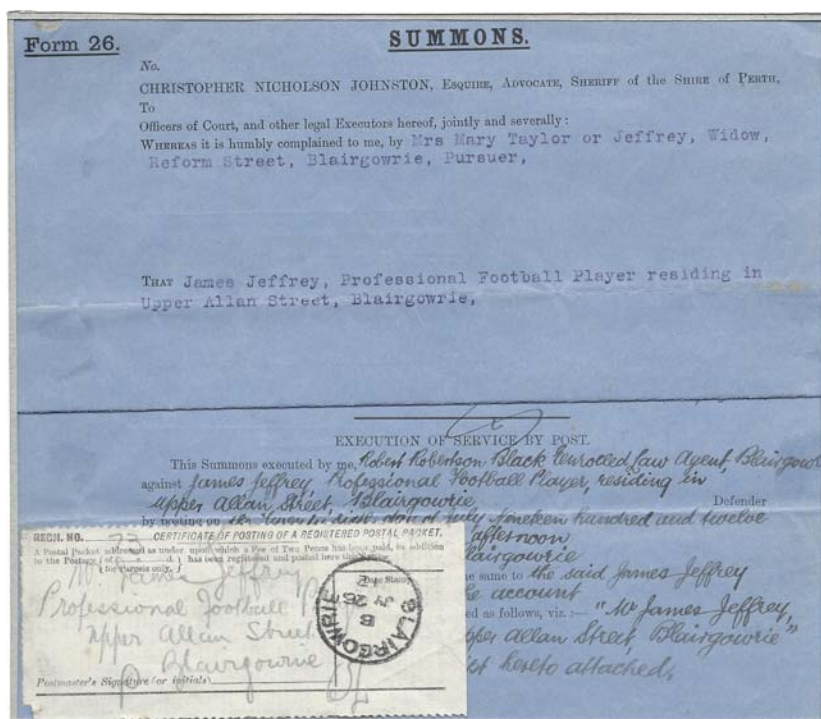 Form 26.
SUMMONS.
No.
CHRISTOPHER NICHOLSON JOHNSTON, ESQUIRE, ADVOCATE, SHERIFF of the SHIRE of PERTH,
To
Officers of Court, and other legal Executors hereof, jointly and severally:
WHEREAS it is humbly complained to me, by Mrs Mary Taylor or Jeffrey, Widow,
Reform Street, Blairgowrie, Pursuer,
THAT James Jeffrey, Professional Football Player residing in
Upper Allan Street, Blairgowrie,
EXECUTION OF SERVICE BY POST.
This Summons executed by me, Robert Robertson Black Enrolled Law Agent, Blairgow
against James Jeffrey, Professional Football Player, residing in
Upper Allan Street, Blairgowrie Defender
by posting on the day of July Nineteen hundred and twelve
afternoon
Blairgowrie
the same to the said James Jeffrey
account
ed as follows, viz.:— "Mr James Jeffrey,
pper Allan Street, Blairgowrie"
hereto attached.
REGN. NO. 73 CERTIFICATE OF POSTING OF A REGISTERED POSTAL PACKET.
A Postal Packet addressed as under, upon which a Fee of Two Pence has been paid, in addition
to the Postage (of d.) has been registered and posted here this
(for Parcels only.)
Date Stamp
Mr James Jeffrey
Professional Football
Upper Allan Street
Blairgowrie
Postmaster's Signature (or initials)
BLAIRGOWRIE
B
JY 26
12